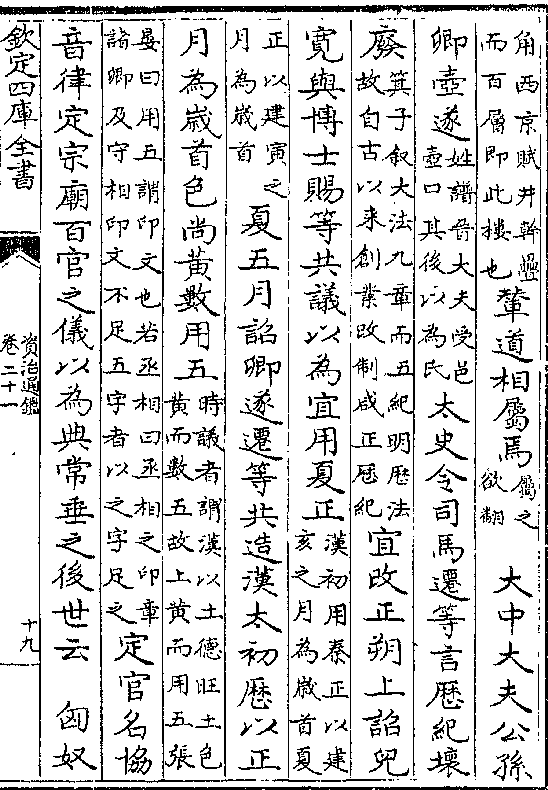 角西京賦井幹疊而百層即此樓也輦道相屬焉屬之欲翻 大中大夫公孫
卿壺遂姓譜晉大夫受邑壺口其後以為氏太史令司馬遷等言歴紀壞
廢箕子叙大法九章而五紀明歴法故自古以來創業改制咸正歴紀宜改正朔上詔兒
寛與博士賜等共議以為宜用夏正漢初用秦正以建亥之月為歳首夏
正以建寅之月為歳首夏五月詔卿遂遷等共造漢太初歴以正
月為歳首色尚黄數用五時議者謂漢以土德旺土色黄而數五故上黄而用五張
晏曰用五謂印文也若丞相曰丞相之印章諸卿及守相印文不足五字者以之字足之定官名協
音律定宗廟百官之儀以為典常垂之後世云 匈奴
欽定四庫全書
資治通鑑
卷二十一
十九